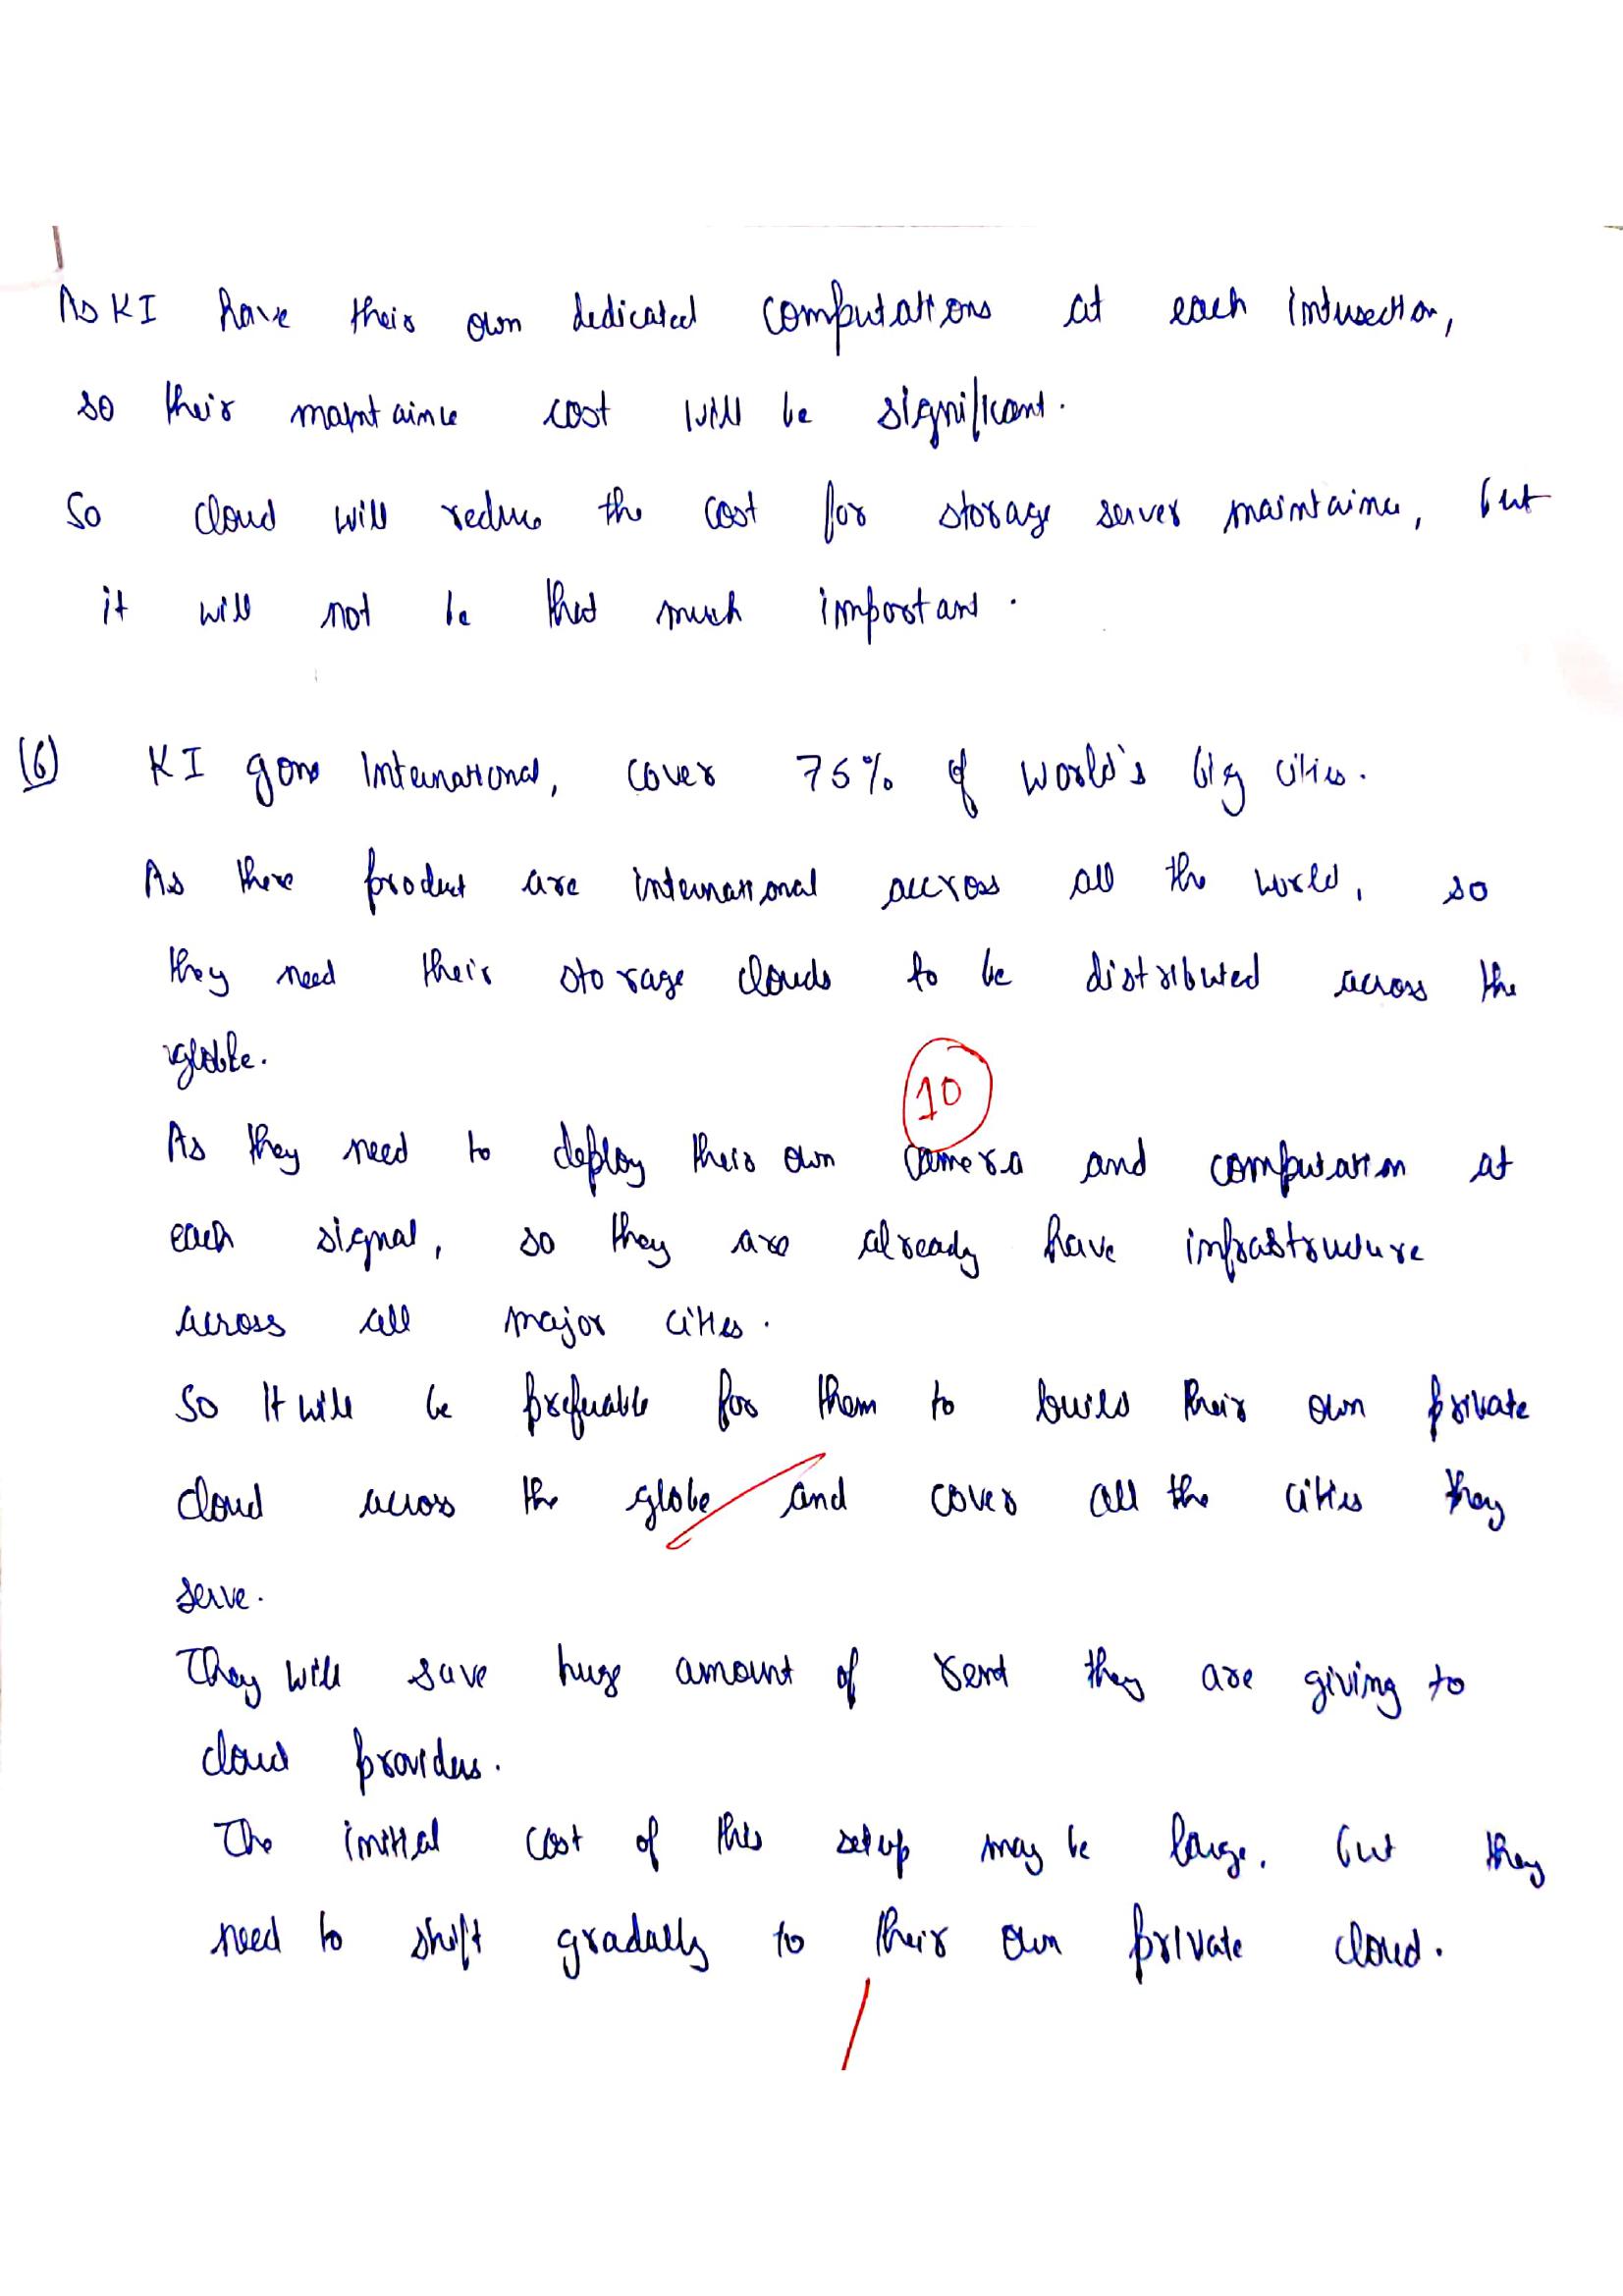 As KI have their own dedicated computations at each intersection,
so their maintaince cost will be significant.
So cloud will reduce the cost for storage server maintaince, but
it will not be that much important.
(6) KI gone International, cover 75% of World's big cities.
As there product are international accross all the world, so
they need their storage clouds to be distributed across the
globe.
10
As they need to deploy their own camera and computation at
each signal, so they are already have infrastructure
across all major cities.
So It will be preferable for them to build their own private
cloud across the globe and cover all the cities they
serve.
They will save huge amount of rent they are giving to
cloud providers.
The initial cost of this setup may be large, but they
need to shift gradally to their own private cloud.